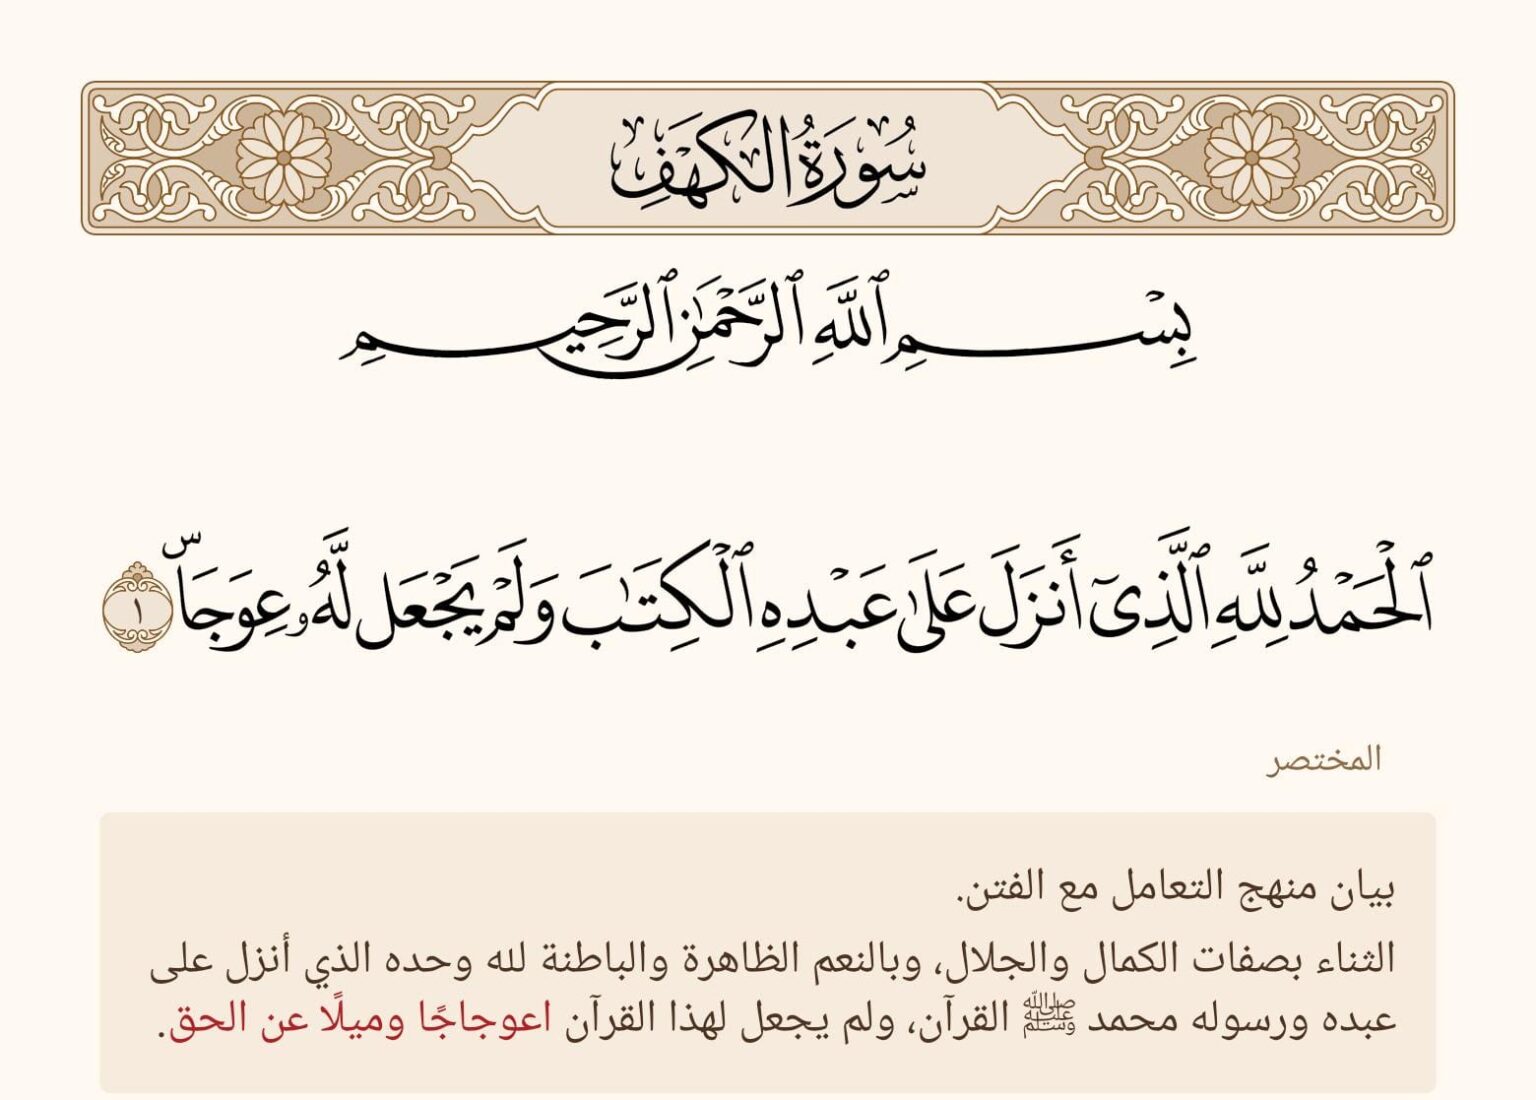 سُورَةُ الكَهْفِ
بِسْمِ ٱللَّهِ ٱلرَّحْمَٰنِ ٱلرَّحِيمِ
ٱلْحَمْدُ لِلَّهِ ٱلَّذِىٓ أَنزَلَ عَلَىٰ عَبْدِهِ ٱلْكِتَٰبَ وَلَمْ يَجْعَل لَّهُۥ عِوَجَاۜ ١
المختصر
بيان منهج التعامل مع الفتن.
الثناء بصفات الكمال والجلال، وبالنعم الظاهرة والباطنة لله وحده الذي أنزل على
عبده ورسوله محمد ﷺ القرآن، ولم يجعل لهذا القرآن اعوجاجًا وميلًا عن الحق.